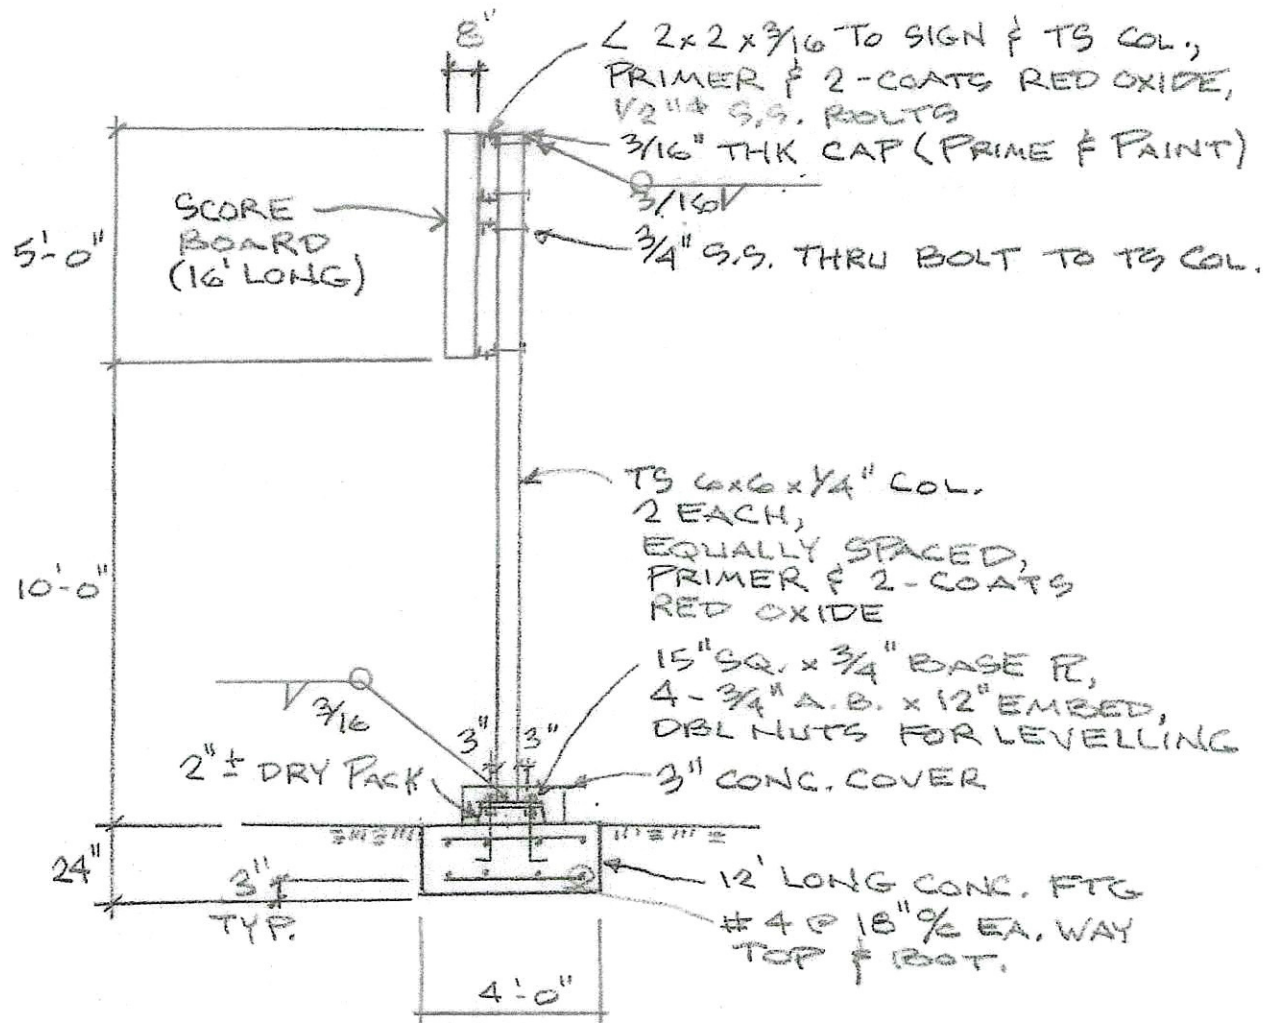 8"
∠ 2x2x3/16 TO SIGN & TS COL.,
PRIMER & 2-COATS RED OXIDE,
1/2"⌀ S.S. BOLTS
3/16" THK CAP (PRIME & PAINT)
3/16
SCORE
BOARD
(16' LONG)
5'-0"
3/4" S.S. THRU BOLT TO TS COL.
TS 6x6x1/4" COL.
2 EACH,
EQUALLY SPACED,
PRIMER & 2-COATS
RED OXIDE
10'-0"
15" SQ. x 3/4" BASE PL,
4-3/4" A.B. x 12" EMBED,
DBL NUTS FOR LEVELLING
3/16
3" 3"
2"± DRY PACK
3" CONC. COVER
24"
3"
TYP.
12' LONG CONC. FTG
#4 @ 18" O/C EA. WAY
TOP & BOT.
4'-0"